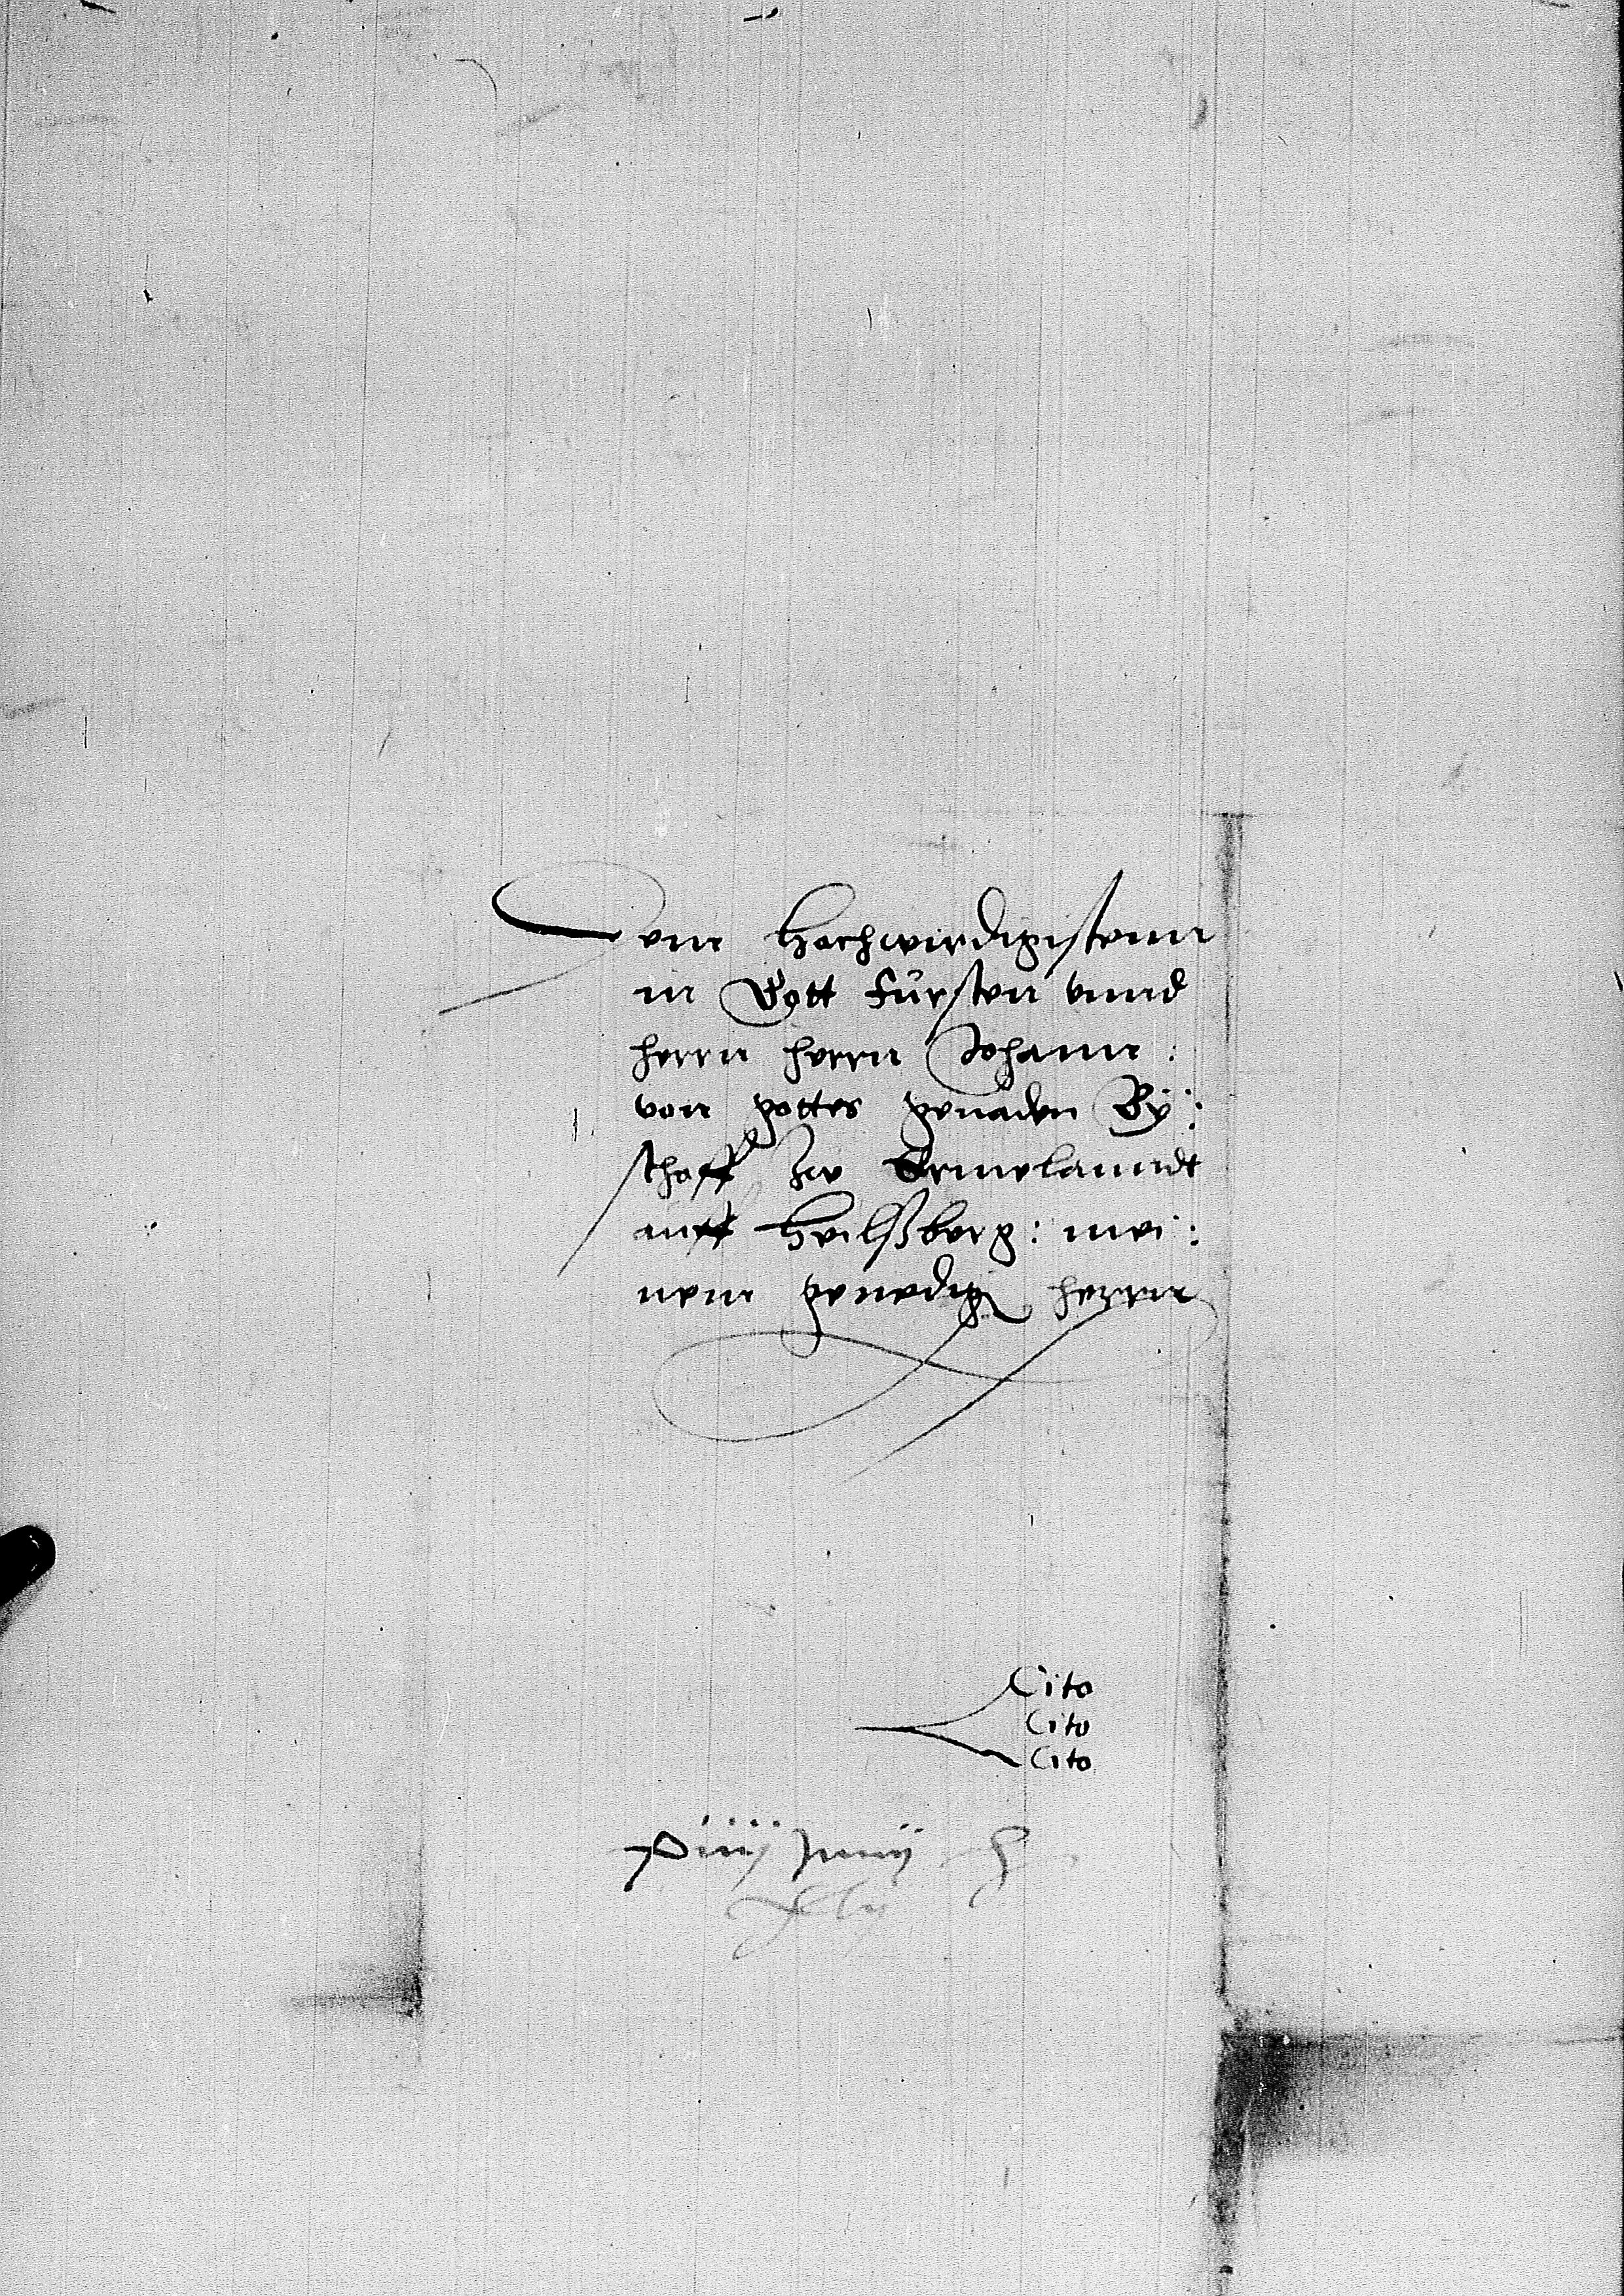 Dem Hochwirdigistenn
in Gott fürsten vnnd
herrn herrn Johann:
von gottes genaden Bÿ:
schoff Zw Ermelanndt
auff Heilßberg: mei:
nem genedig herrnn
Cito
Cito
Cito
xiiij Junij